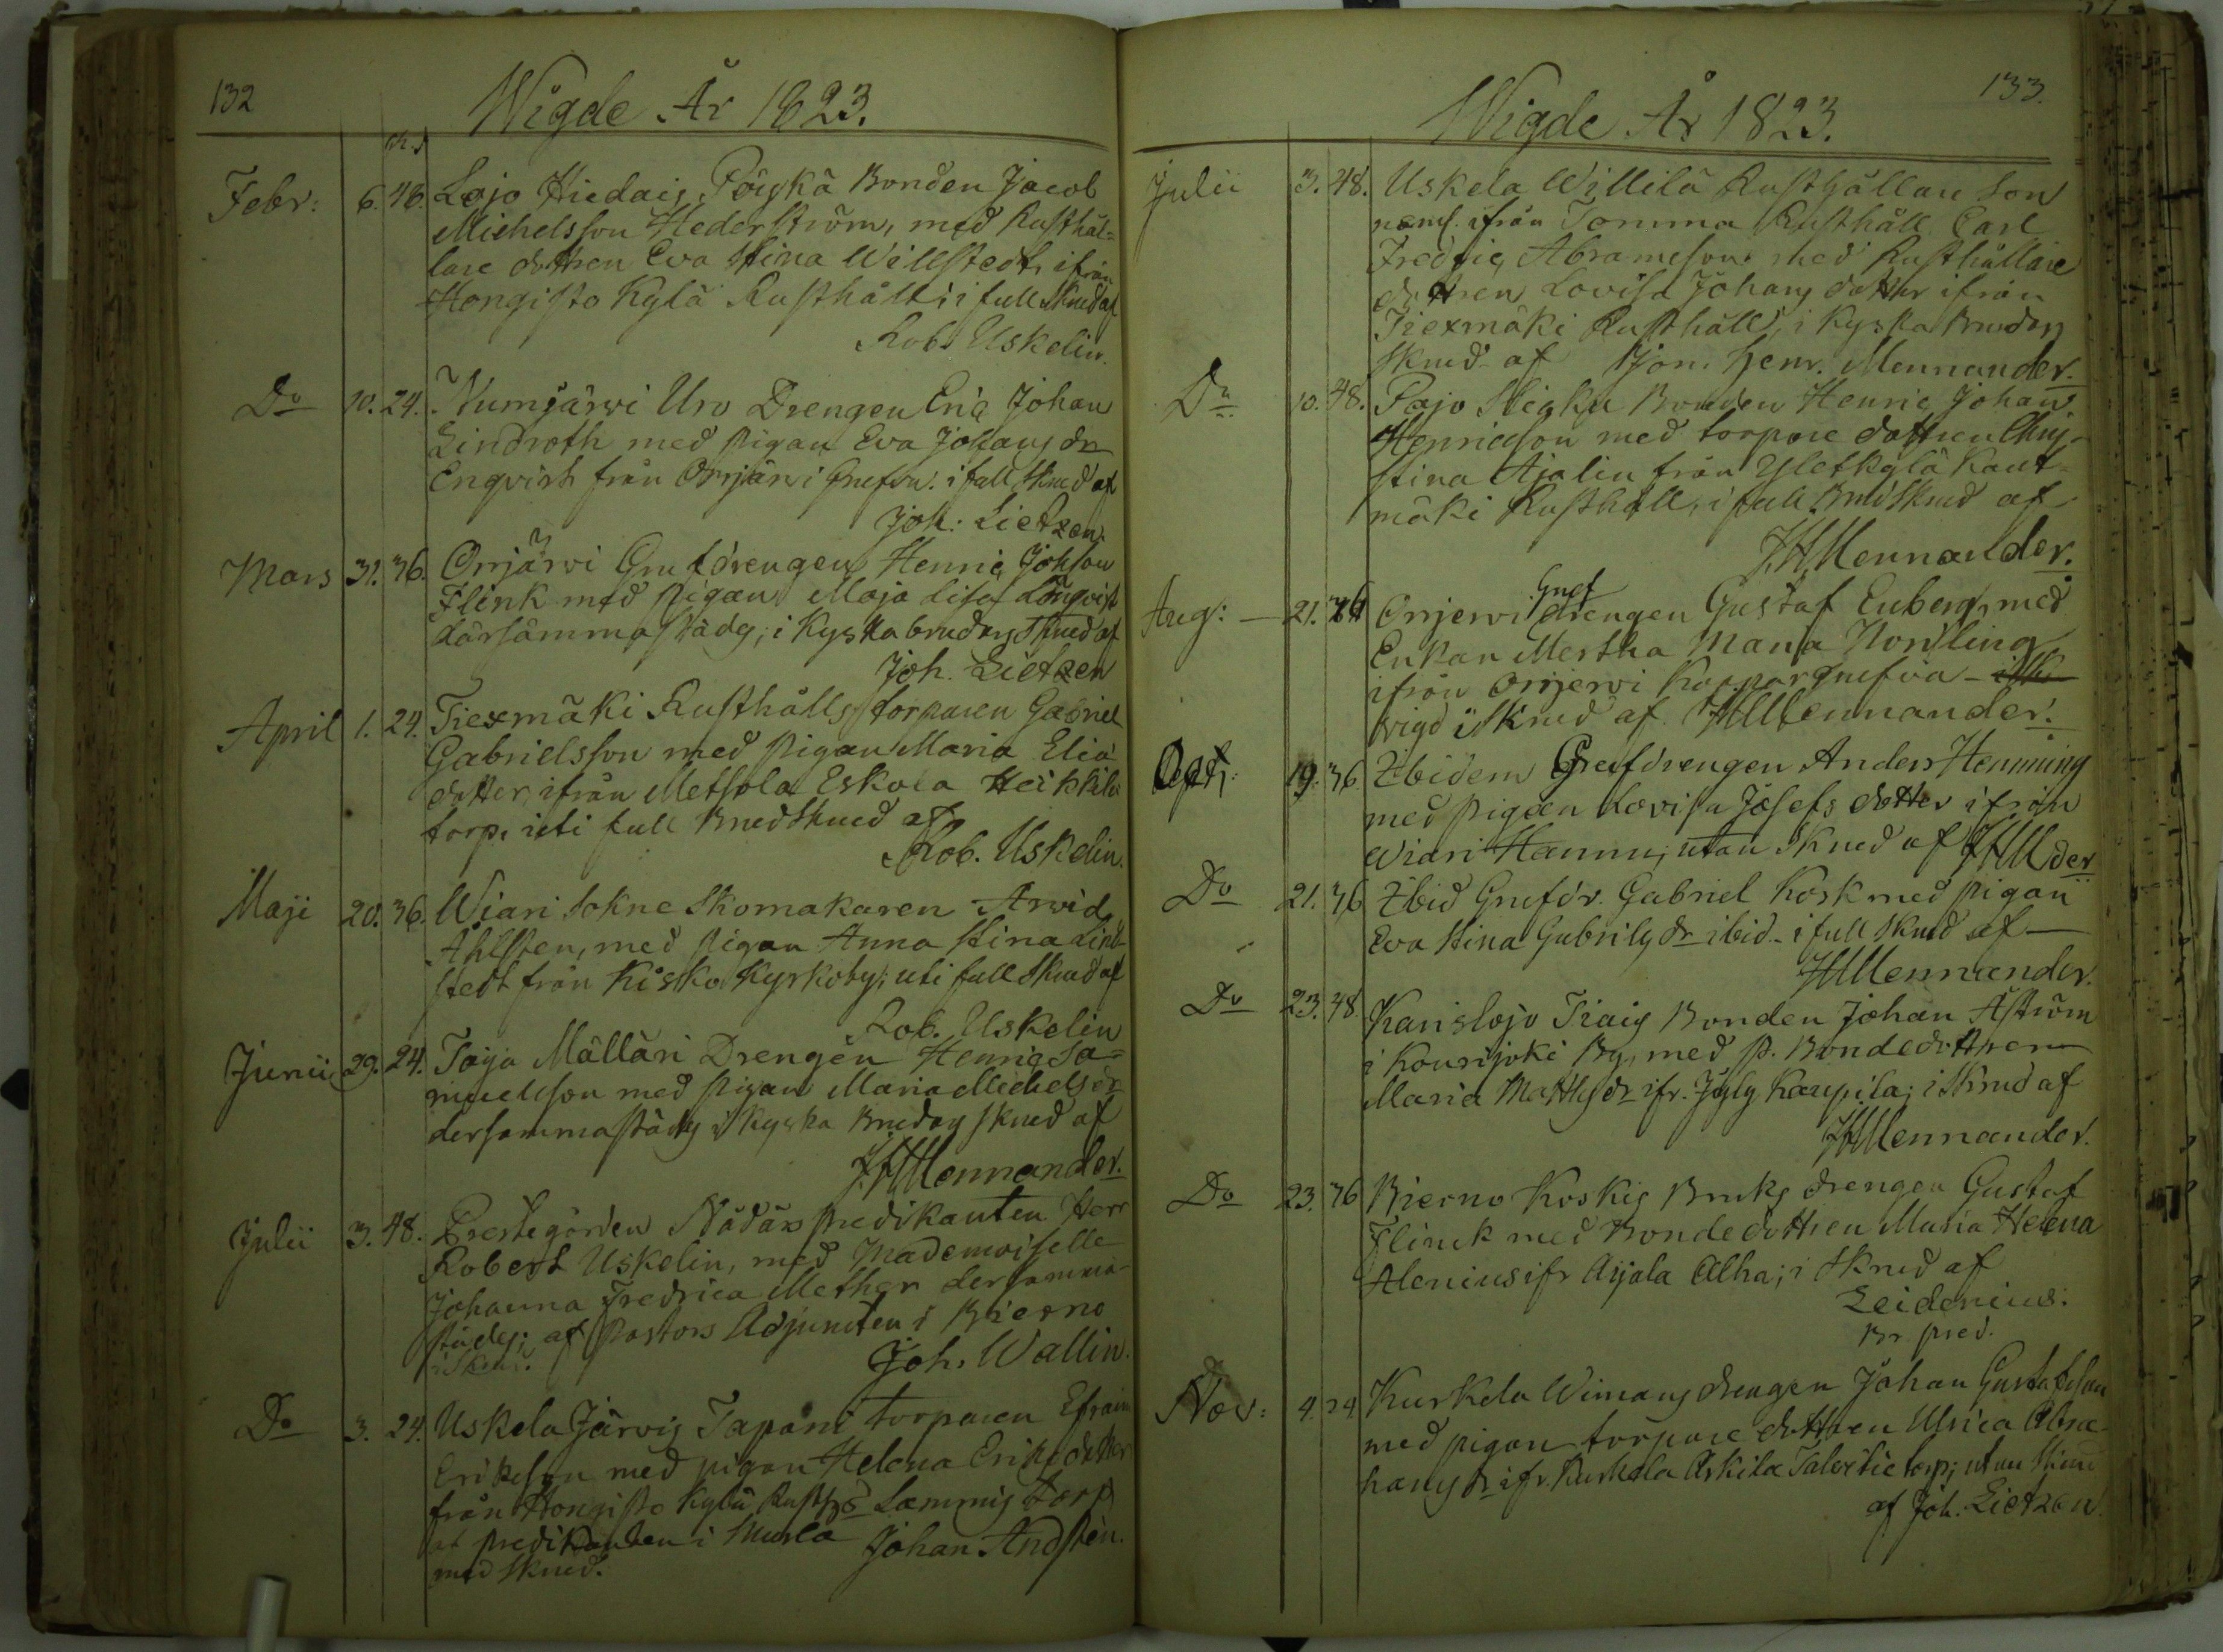 132
Wigde År 1823.
Febr: 6. 48. Lojo Hiedais, Pöyskä Bonden Jacob
Michelsson Hederström, med Rusthål=
lare dottren Eva Stina Willstedt, ifrån
Hongisto Kylä Rusthåll; i full skrud af
Rob. Uskelin.
Do 10. 24. Numjärvi Uro Drengen Eric Johan
Lindroth med pigan Eva Johans dr
Enqvist från Orrjärvi Grufva. i full skrud af
Joh: Lietzen.
Mars 31. 36. Orrjärvi Grufdrengen Henric Johsson
Flink med pigan Maja Lisa Lönqvist
därsammastäds; i kyska brudens skrud af
Joh. Lietzen
April 1. 24. Tiexmäki Rusthålls torparen Gabriel
Gabrielsson med pigan Maria Elia
dotter, ifrån Metsola Eskola Heikkilä
torp, uti full Brudskrud af
Rob. Uskelin.
Maji 20. 36. Wiari Sokne Skomakaren Arvid
Åhlsten, med pigan Anna Stina Lind=
stedt från Kisko Kyrkoby; uti full skrud af
Rob. Uskelin
Junii 29. 24. Toija Mälläri Drengen Henric Sa=
muelsson med pigan Maria Michels dr
dersammastäds i kyska Brudens skrud af
JHMennander.
Julii 3. 48. Prestegården Nådårs predikanten Herr
Robert Uskelin, med Mademoiselle
Johanna Fredrica Mether dersamma=
städes; af Pastors Adjuncten i Bierno
i skrud. Joh. Wallin.
Do 3. 24. Uskela Järvis Tapani torparen Efraim
Ericsson med pigan Helena Ericsdotter
från Hongisto Kylä Lammis Torp
af predikanten i Murla Johan Andstén.
med skrud.
133.
Wigde År 1823.
Julii 3. 48. Uskela Willilä Rusthållare Son
neml. ifrån Tomma Rusthåll Carl
Fredric Abramsson med Rusthållare
dottren Lovisa Johans dotter ifrån
Tiexmäki Rusthåll, i kyska Brudens
skrud af Jon. Henr. Mennander.
Do 10. 48. Pojo Bonden Henric Johan
Henricsson med torpare dottren Chri=
stina Ajalin från Yletkylä Kaut=
mäki Rusthåll, i full Brudskrud af
JHMennander.
Aug: 21. Orrjervi Gruf drengen Gustaf Enberg, med
Enkan Mertha Maria Norrling
ifrån Orrjervi Koppargrufva
wigd i skrud af JHMennander.
Sept: 19. 36. Ibidem Grufdrengen Anders Henning
med pigan Lovisa Josefs dotter ifrån
Wiari Hannu; utan skrud af JHMder
Do 21. 36 Ibid Grufdr. Gabriel Kosk med pigan
Eva Stina Gabriels dr ibid. i full skrud af
JHMennander.
Do 23. 48. Karislojo Bonden Johan Åström
i Kourjoki By, med p. Bondedottren
Maria Matts dr ifr. Kaupila; i skrud af
JHMennander.
Do 23. 36 Bierno Koskis Bruks drengen Gustaf
Flinck med Bondedottren Maria Helena
Alenius ifr Aijala Alha; i skrud af
Leidenius.
Br pred.
Nov: 4. 24 Kurkela Wimans drengen Johan Gustafsson
med pigan torpare dottren Ulrica Abra=
hams dr ifr. Kurkela Askila torp; utan skrud
af Joh. Lietzen.